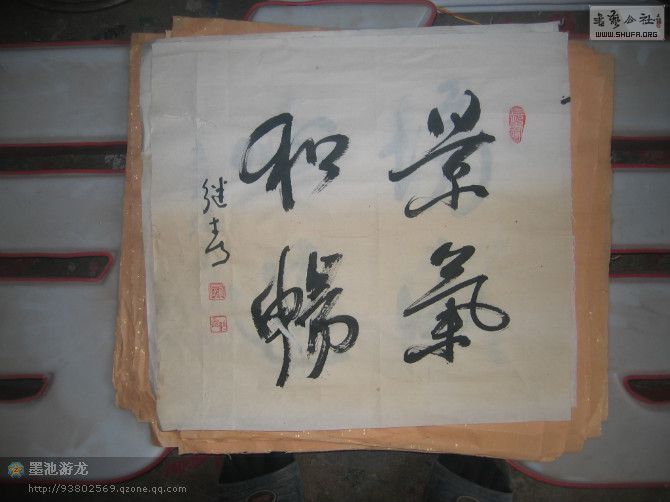 景氣
和暢
书艺公社
WWW.SHUFA.ORG
墨池游龙
http://93802569.qzone.qq.com